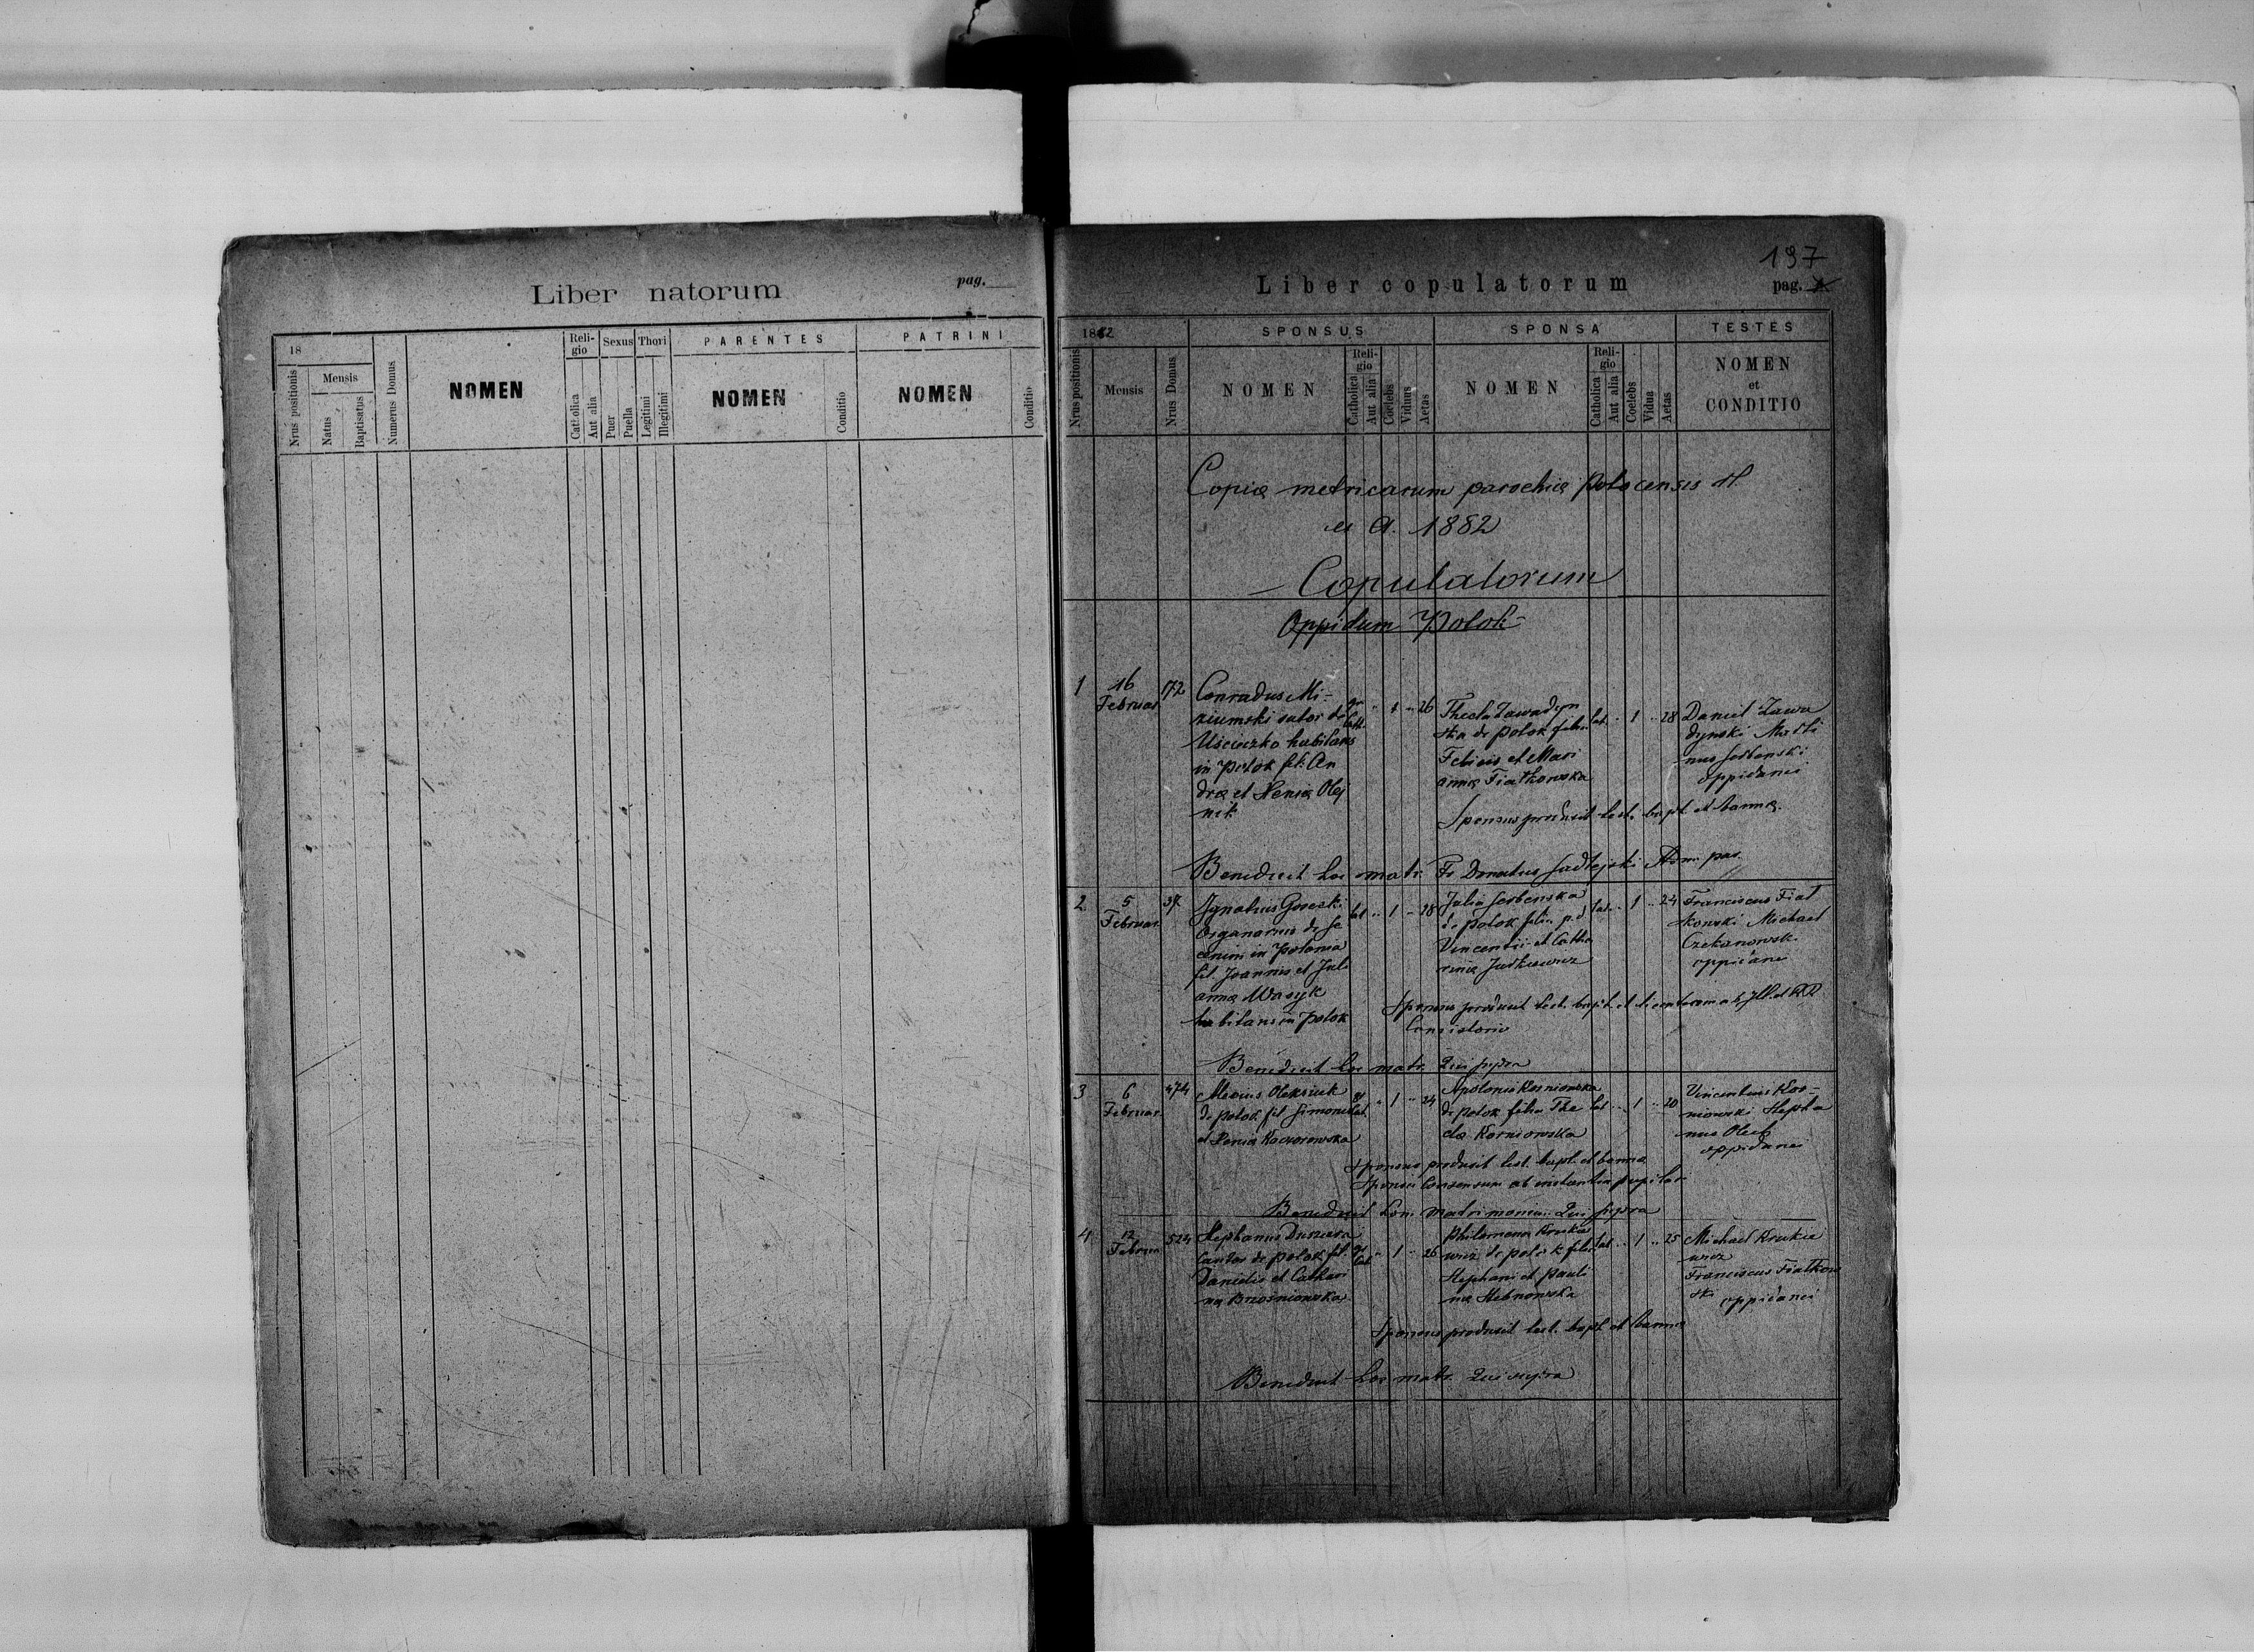 Liber natorum
pag.
18
Mensis
Nrus positionis
Natus
Baptisatus
Numerus Domus
NOMEN
Religio
Catholica
Aut alia
Sexus
Puer
Puella
Thori
Legitimi
Illegitimi
PARENTES
NOMEN
Conditio
PATRINI
NOMEN
Conditio
197
Liber copulatorum
pag.
1882
Nrus positionis
Mensis
Nrus Domus
SPONSUS
NOMEN
Religio
Catholica
Aut alia
Coelebs
Viduus
Aetas
SPONSA
NOMEN
Religio
Catholica
Aut alia
Coelebs
Vidua
Aetas
TESTES
NOMEN
et
CONDITIO
Copiæ metricarum parochiæ Potocensis
A. 1882
Copulatorum
Oppidum Potok
1
16
Februar
172
Conradus Mi-
ziumski sutor de
Uscieczko habitans
in Potok fil. An
dræ et Xeniæ Olej
nik
1 26
Thecla Zawadyn
ska de Potok filia
Felicis et Mari
annæ Fiatkowska
lat. 1 28
Daniel Zawa
dynski
oppidanei
Sponsus produxit test. bapt. et banna.
Benedixit hoc matr. Fr Donatus Sadlejski Adm. par.
2
5
Februar
37
Ignatius Gorecki
Organarius de
in Polonia
fil. Joannis et Juli
annæ Wasyk
habitans in Potok
lat 1 28
Julia Serbenska
de Potok filia p.d
Vincentii et Catha
rinæ Jurkiewicz
lat. 1 24
Franciscus Fiat
kowski Michael
Czekanowski
oppidanei
Sponsus produxit test. bapt. et
Consistorio
Benedixit hoc matr. Qui supra
3
6
Februar
474
Alexius Oleksiuk
de Potok fil Simonis
et Xeniæ Kaczorowska
1 24
Apolonia Korniowska
de Potok filia The
clæ Korniowska
lat 1 20
Vincentius Kor-
niowski Stepha
nus Olech
oppidanei
Sponsus produxit test. bapt. et banna
Sponsi consensum ab instantia pupilar
Benedixit hoc matrimonium Qui supra
4
12
Februar
524
Stephanus
Cantor de Potok fil.
Danielis et Cathari
næ Brzosniowska
1 26
Philomena Krukie
wicz de Potok filia
Stephani et Pauli
næ Stebnowska
lat 1 25
Michael Krukie
wicz
Franciscus Fiatkow
ski oppidanei
Sponsus produxit test. bapt. et banna
Benedixit hoc matr. Qui supra